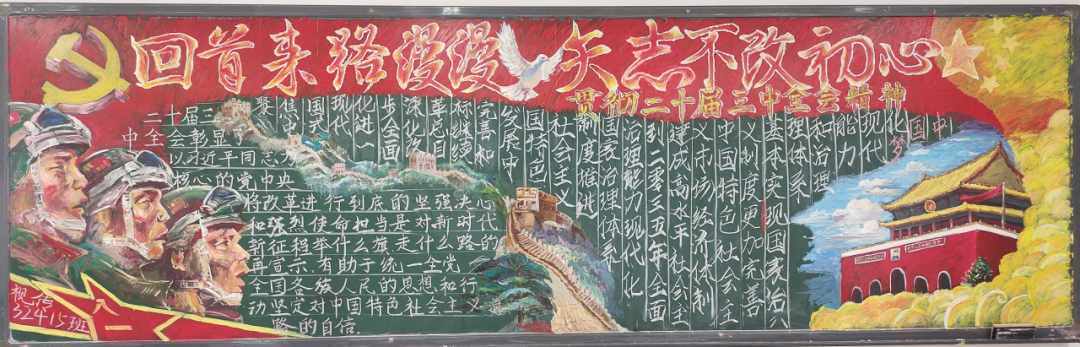 回首来路漫漫 矢志不改初心
贯彻二十届三中全会精神
二十届三
中全会彰显了
以习近平同志为
核心的党中央
将改革进行到底的坚强决心
和强烈使命担当是对新时代
新征程举什么旗走什么路的
再宣示,有助于统一全党
全国各族人民的思想和行
动坚定对中国特色社会主义道
路的自信
聚
焦中
国式
现代
化进一
步全面
深化改
革总目
标继续
完善和
发展中
国特色
社会主义
制度推进
国家治理体系
治理能力现代化
到二零三五年全面
建成高水平社会主
义市场经济体制
中国特色社会主
义制度更加完善
基本实现国家治
理体系
和治理
能力
现代
化
中国梦
八一
视传
2415班